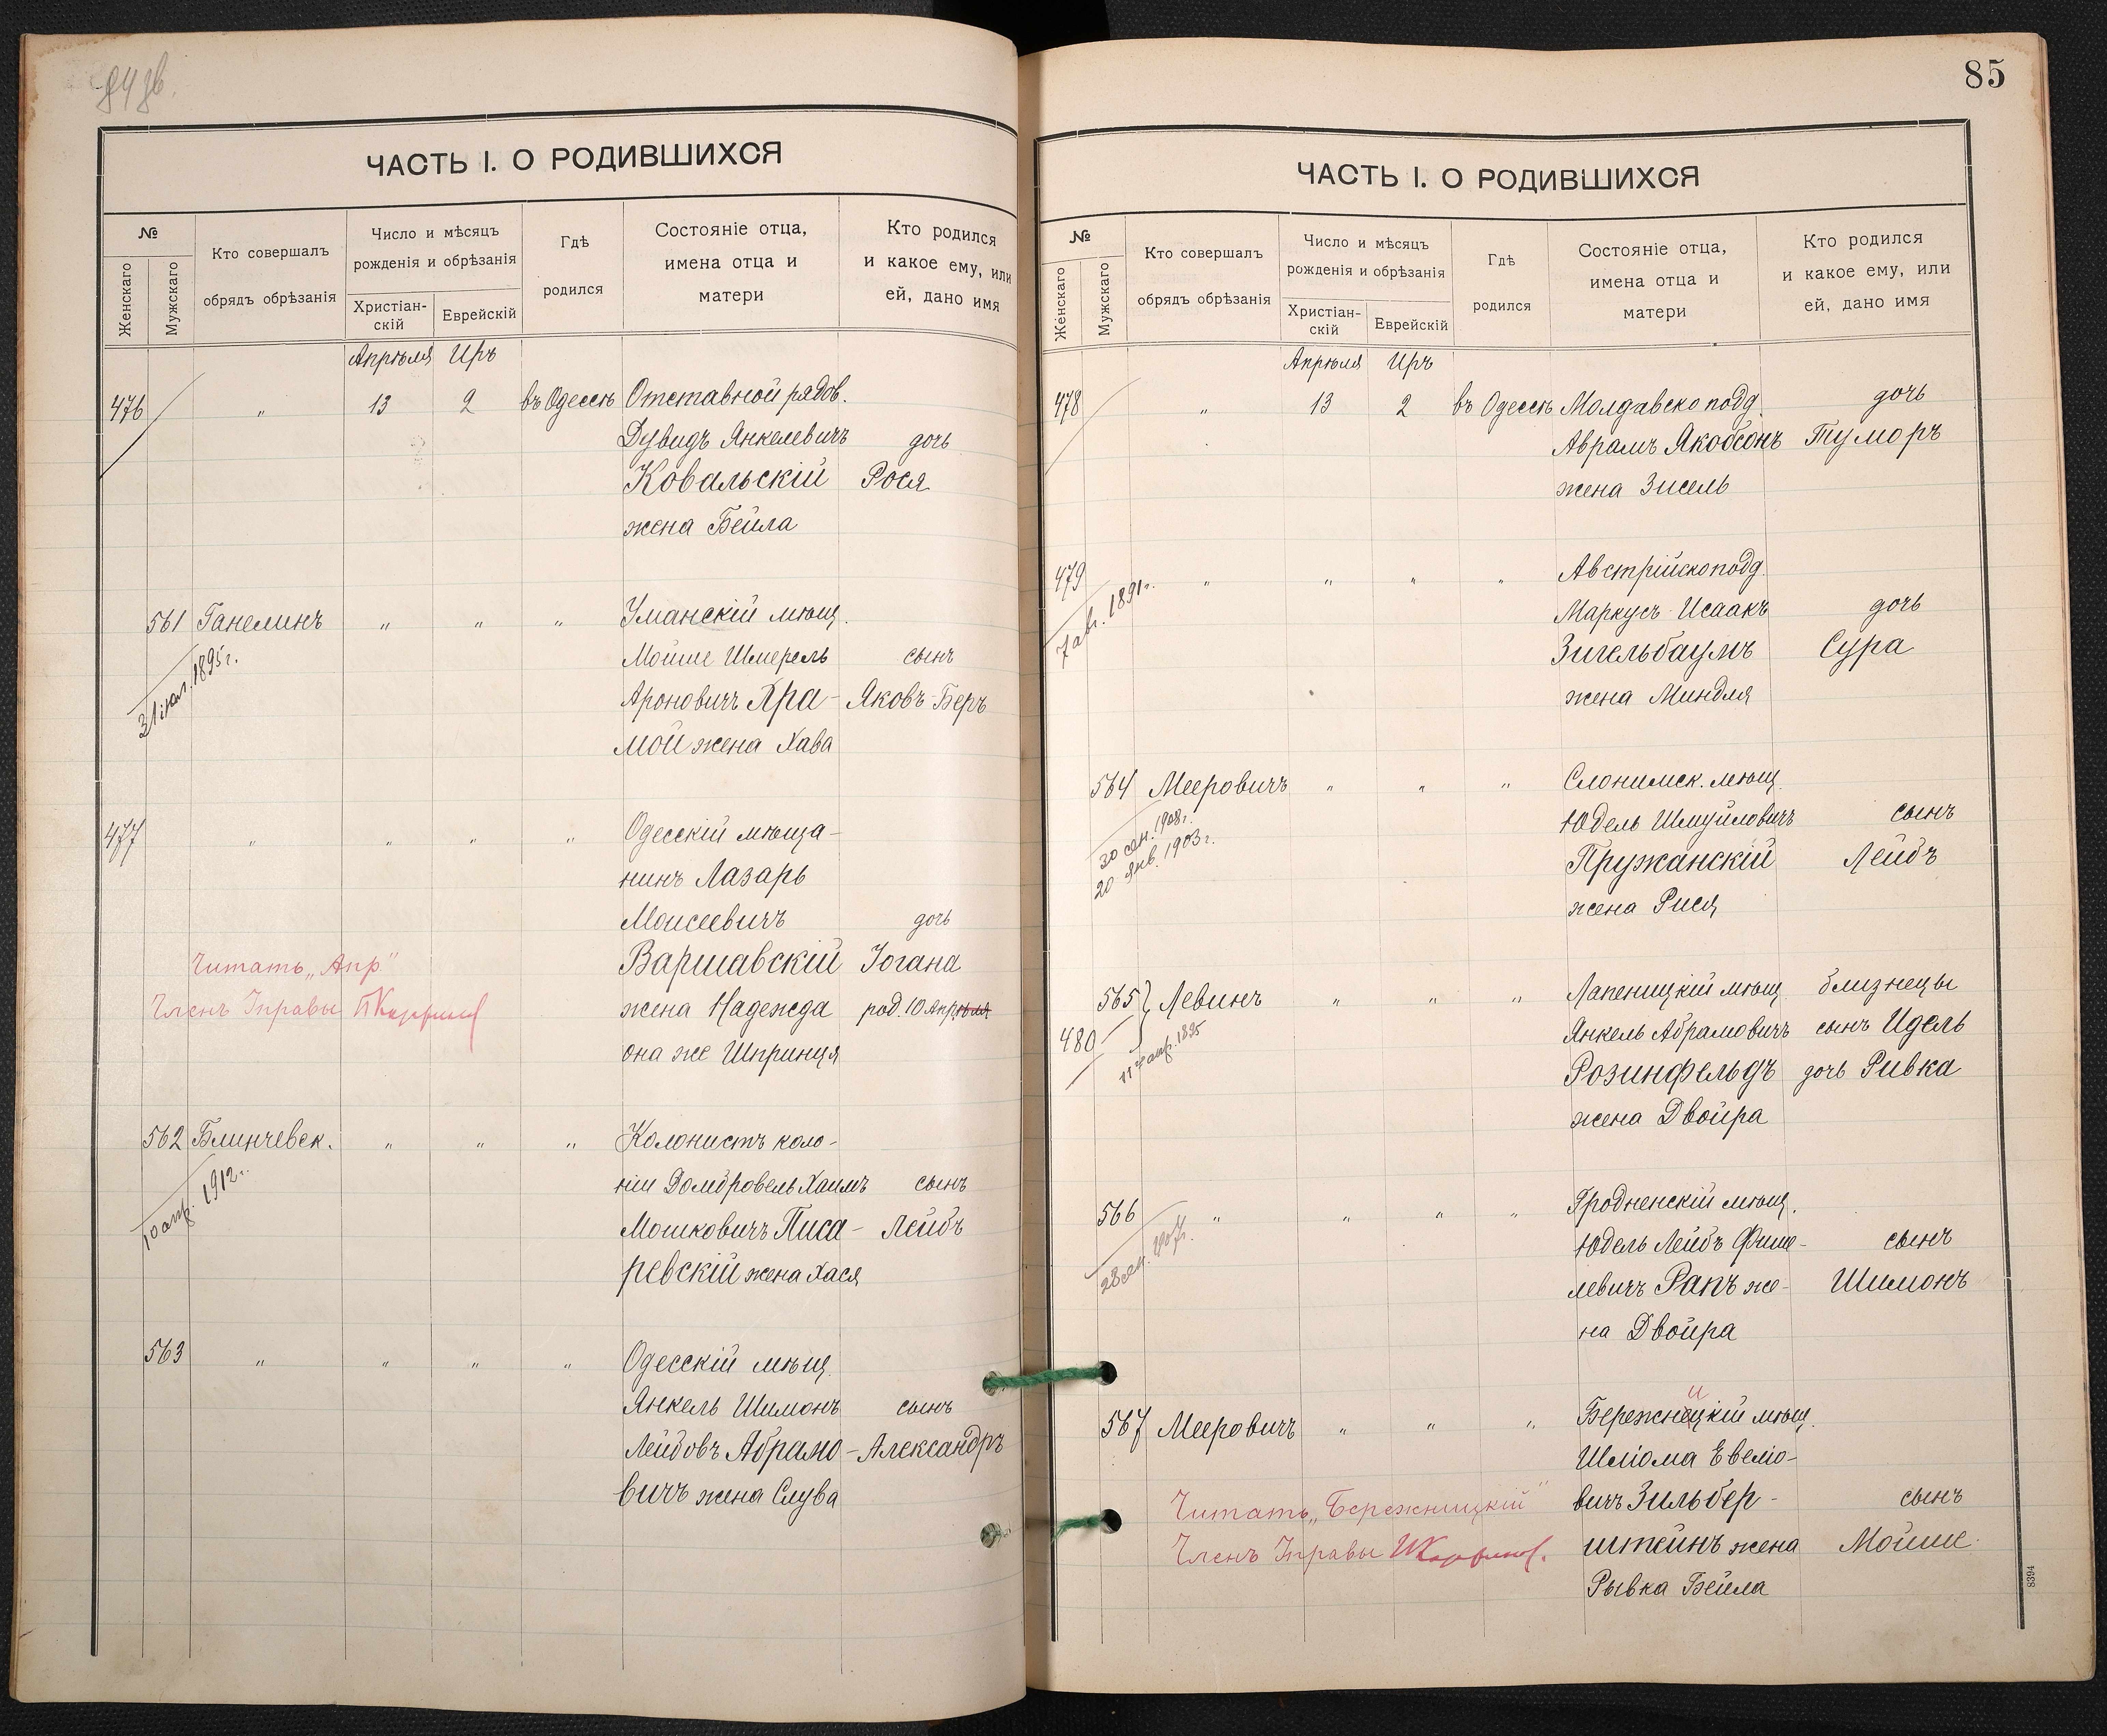 84 зв.
ЧАСТЬ I. О РОДИВШИХСЯ
№
Женскаго
Мужскаго
Кто совершалъ
обрядъ обрѣзанія
Число и мѣсяцъ
рожденія и обрѣзанія
Христіан-
скій
Еврейскій
Гдѣ
родился
Состояніе отца,
имена отца и
матери
Кто родился
и какое ему, или
ей, дано имя
Апрѣля Иръ
476 " 13 2 въ Одессѣ Отставной рядов.
Дувидъ Янкелевичъ дочь
Ковальскій Рося
жена Бейла
561 Ганелинъ " " " Уманскій мѣщ.
31 1895 г.
Мойше Шмерель сынъ
Ароновичъ Хра- Яковъ-Беръ
мой жена Хава
477 " " " " Одесскій мѣща-
нинъ Лазарь
Моисеевичъ дочь
Варшавскій Іогана
жена Надежда род. 10 Апрѣля
она же Шпринця
Читать „Апр"
Членъ Управы
562 Блинчевск. " " " Колонистъ коло-
10 апр. 1912 г.
ніи Домбровель Хаимъ сынъ
Мошковичъ Писа- Лейбъ
ревскій жена Хася
563 " " " " Одесскій мѣщ.
Янкель Шимонъ сынъ
Лейбовъ Абрамо- Александръ
вичъ жена Слува
85
ЧАСТЬ I. О РОДИВШИХСЯ
№
Женскаго
Мужскаго
Кто совершалъ
обрядъ обрѣзанія
Число и мѣсяцъ
рожденія и обрѣзанія
Христіан-
скій
Еврейскій
Гдѣ
родился
Состояніе отца,
имена отца и
матери
Кто родился
и какое ему, или
ей, дано имя
Апрѣля Иръ
478 " 13 2 въ Одессѣ Молдавско подд. дочь
Аврамъ Якобсонъ Туморъ
жена Зисель
479 " " " " Австрійскоподд.
7 ав. 1891 г.
Маркусъ-Исаакъ дочь
Зигельбаумъ Сура
жена Миндля
564 Мееровичъ " " " Слонимск. мѣщ.
30 сен. 1908 г.
20 янв. 1903 г.
Юдель Шмуйловичъ сынъ
Пружанскій Лейбъ
жена Рися
565 Левинъ " " " Лапеницкій мѣщ. близнецы
480
17 апр. 1895
Янкель Абрамовичъ сынъ Идель
Розинфельдъ дочь Ривка
жена Двойра
566 " " " " Гродненскій мѣщ.
28 сен. 1907 г.
Юдель Лейбъ Фише- сынъ
левичъ Рапъ же- Шимонъ
на Двойра
и
567 Мееровичъ " " " Бережнецкій мѣщ.
Шліома Евеліо-
вичъ Зильбер- сынъ
штейнъ жена Мойше.
Рывка Бейла
Читать „Бережницкій"
Членъ Управы
8394